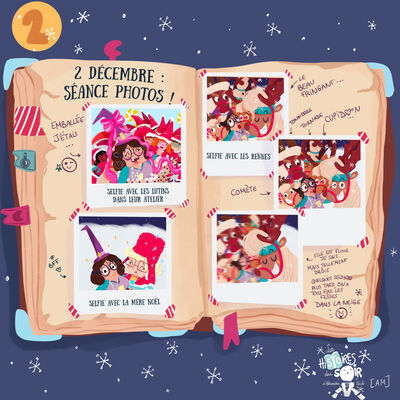 2
2 DÉCEMBRE :
SÉANCE PHOTOS !
EMBALLÉE
J'ÉTAIS...
SELFIE AVEC LES LUTINS
DANS LEUR ATELIER
BFF
SELFIE AVEC LA MÈRE NOËL
LE
BEAU
FRINGANT...
SELFIE AVEC LES RENNES
TONNERRE
TORNADE
CUPIDON
COMÈTE
ELLE EST FLOUE
JE SAIS
MAIS TELLEMENT
DRÔLE
QUELQUES SECONDES
PLUS TARD, ON A
TOUS FINI LES
FESSES
DANS LA NEIGE
Les
HISTOIRES
du SOIR
[AM]